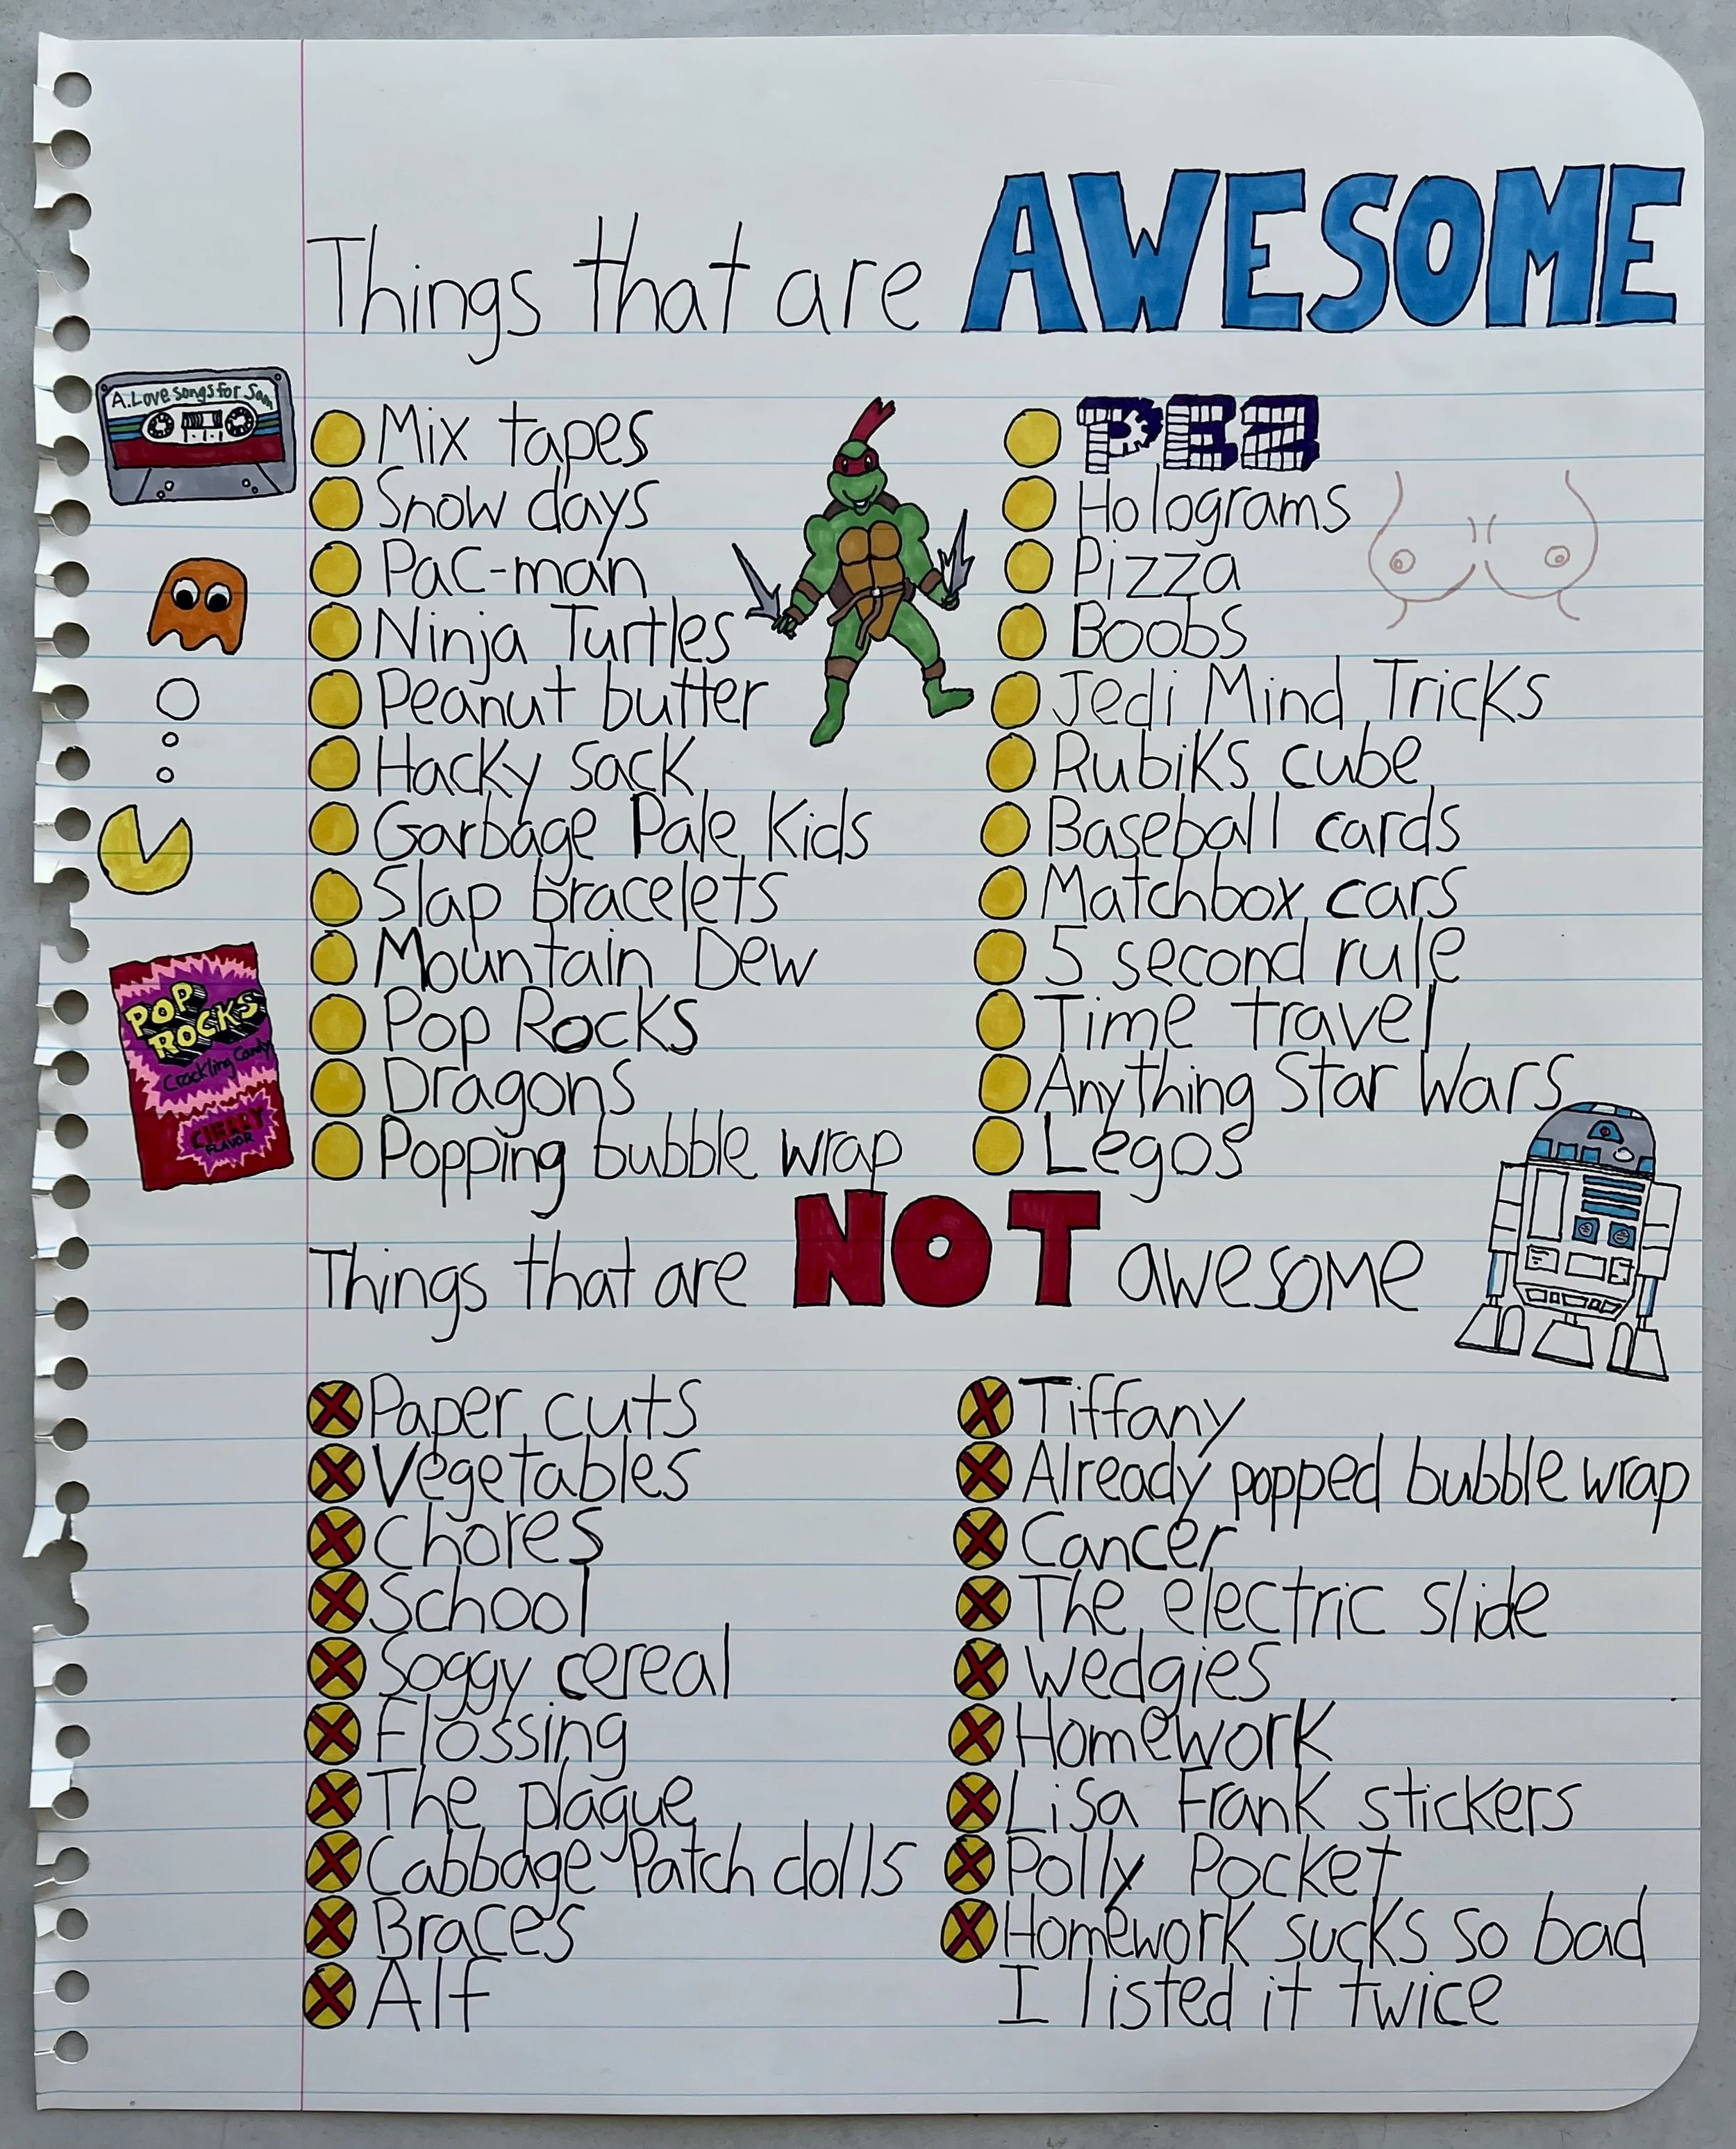 Things that are AWESOME
A. Love songs for Sam
Mix tapes
Snow days
Pac-man
Ninja Turtles
Peanut butter
Hacky sack
Garbage Pale Kids
Slap bracelets
Mountain Dew
Pop Rocks
Dragons
Popping bubble wrap
POP
ROCKS
Crackling Candy
CHERRY
FLAVOR
PEZ
Holograms
Pizza
Boobs
Jedi Mind Tricks
Rubiks cube
Baseball cards
Matchbox cars
5 second rule
Time travel
Anything Star Wars
Legos
Things that are NOT awesome
Paper cuts
Vegetables
Chores
School
Soggy cereal
Flossing
The plague
Cabbage Patch dolls
Braces
Alf
Tiffany
Already popped bubble wrap
Cancer
The electric slide
Wedgies
Homework
Lisa Frank stickers
Polly Pocket
Homework sucks so bad
I listed it twice